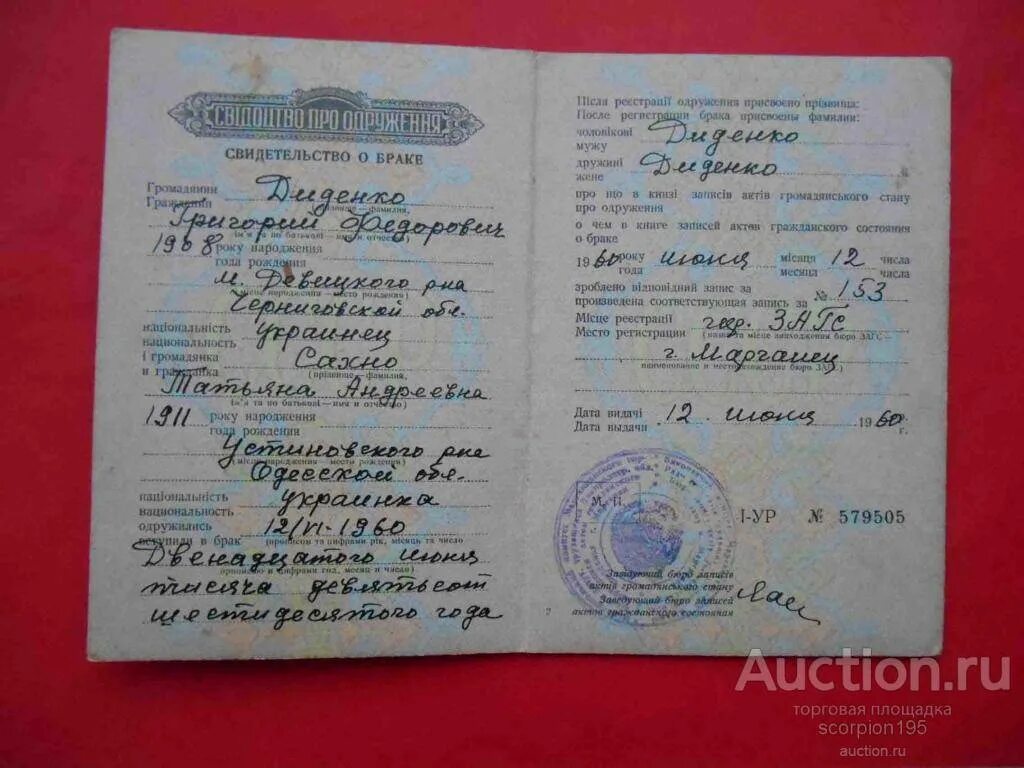 СВІДОЦТВО ПРО ОДРУЖЕННЯ
СВИДЕТЕЛЬСТВО О БРАКЕ
Громадянин Диденко
Гражданин
(прізвище—фамилия,
Григорий Федорович
ім'я та по батькові—имя и отчество)
1908 року народження
года рождения
м. Девицкого р-на
(місце народження—место рождения)
Черниговской обл.
національність украинец
национальность
і громадянка Сахно
и гражданка (прізвище—фамилия,
Татьяна Андреевна
ім'я та по батькові—имя и отчество)
1911 року народження
года рождения
Устиновского р-на
(місце народження—место рождения)
Одесской обл.
національність украинка
национальность
одружились 12/VI-1960
вступили в брак (прописом та цифрами рік, місяць та число)
Двенадцатого июня
прописью и цифрами год, месяц и число)
тысяча девятьсот
шестидесятого года
Після реєстрації одруження присвоєно прізвища:
После регистрации брака присвоены фамилии:
чоловікові Диденко
мужу
дружині Диденко
жене
про що в книзі записів актів громадянського стану
про одруження
о чем в книге записей актов гражданского состояния
о браке
1960 року июня місяця 12 числа
года месяца числа
зроблено відповідний запис за
произведена соответствующая запись за № 153
Місце реєстрації гор. ЗАГС
Место регистрации (назва та місце знаходження бюро ЗАГС—
г. Марганец
наименование и местонахождение бюро ЗАГС)
Дата видачі 12 июня 1960 р.
Дата выдачи г.
М. П.
І-УР № 579505
Завідуючий бюро записів
актів громадянського стану
Заведующий бюро записей
актов гражданского состояния
Auction.ru
торговая площадка
scorpion195
auction.ru